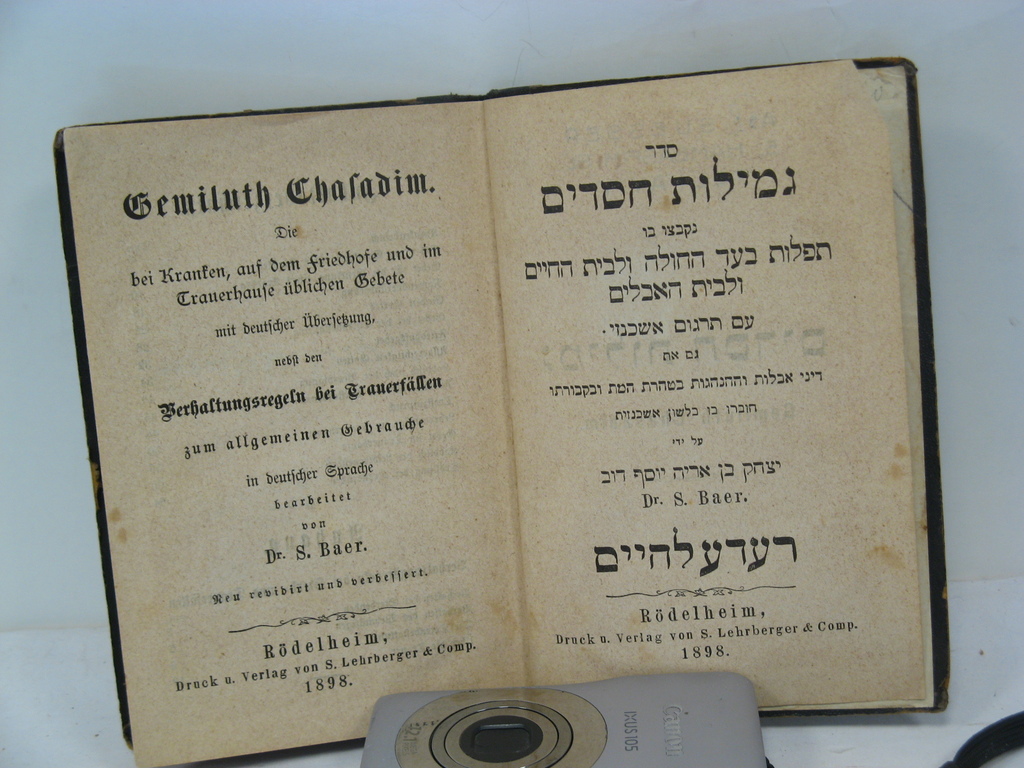 Gemiluth Chasadim.
Die
bei Kranken, auf dem Friedhofe und im
Trauerhause üblichen Gebete
mit deutscher Übersetzung,
nebst den
Verhaltungsregeln bei Trauerfällen
zum allgemeinen Gebrauche
in deutscher Sprache
bearbeitet
von
Dr. S. Baer.
Neu revidirt und verbessert.
Rödelheim,
Druck u. Verlag von S. Lehrberger & Comp.
1898.
סדר
גמילות חסדים
נקבצו בו
תפלות בעד החולה ולבית החיים
ולבית האבלים
עם תרגום אשכנזי.
גם את
דיני אבלות וההנהגות בטהרת המת ובקבורתו
חוברו בו בלשון אשכנזית
על ידי
יצחק בן אריה יוסף דוב
Dr. S. Baer.
רעדעלהיים
Rödelheim,
Druck u. Verlag von S. Lehrberger & Comp.
1898.
Canon
IXUS 105